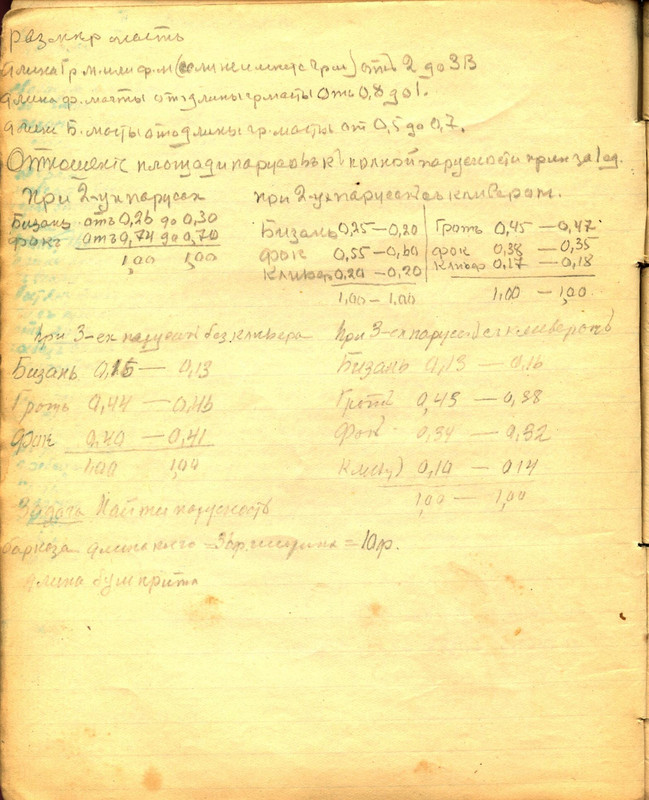 длина Гр. м. или ф. м отъ 2 до 3В
длина ф. мачты отъ длины гр. мачты отъ 0,8 до 1.
длина Б. мачты отъ длины гр. мачты от 0,5 до 0,7.
площади парусовъ къ полной парусности прин за 1 ед.
при 2-ух парусах
Бизань отъ 0,26 до 0,30
Фокъ отъ 0,74 до 0,70
1,00 1,00
при 2-ух парусахъ съ кливером.
Бизань 0,25 — 0,20
Фок 0,55 — 0,60
Кливер 0,20 — 0,20
1,00 — 1,00
Гротъ 0,45 — 0,47
Фок 0,38 — 0,35
Кливер 0,17 — 0,18
1,00 — 1,00
при 3-ех парусах без кливера
Бизань 0,15 — 0,13
Гротъ 0,44 — 0,46
Фок 0,40 — 0,41
1,00 1,00
При 3-ех парусах с кливеромъ
Бизань 0,13 — 0,16
Гротъ 0,43 — 0,38
Фок 0,34 — 0,32
0,10 — 0,14
1,00 — 1,00
Задача Найти парусность
баркоза длина = 36ф. ширина = 10ф.
длина бушприта